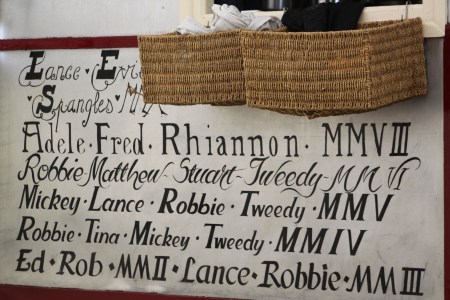 Lance · E
& Spangles · MM
Adele · Fred · Rhiannon · MMVIII
Robbie Matthew - Stuart - Tweedy - MMVI
Mickey · Lance · Robbie · Tweedy · MMV
Robbie · Tina · Mickey · Tweedy · MMIV
Ed · Rob · MMII · Lance · Robbie · MMIII